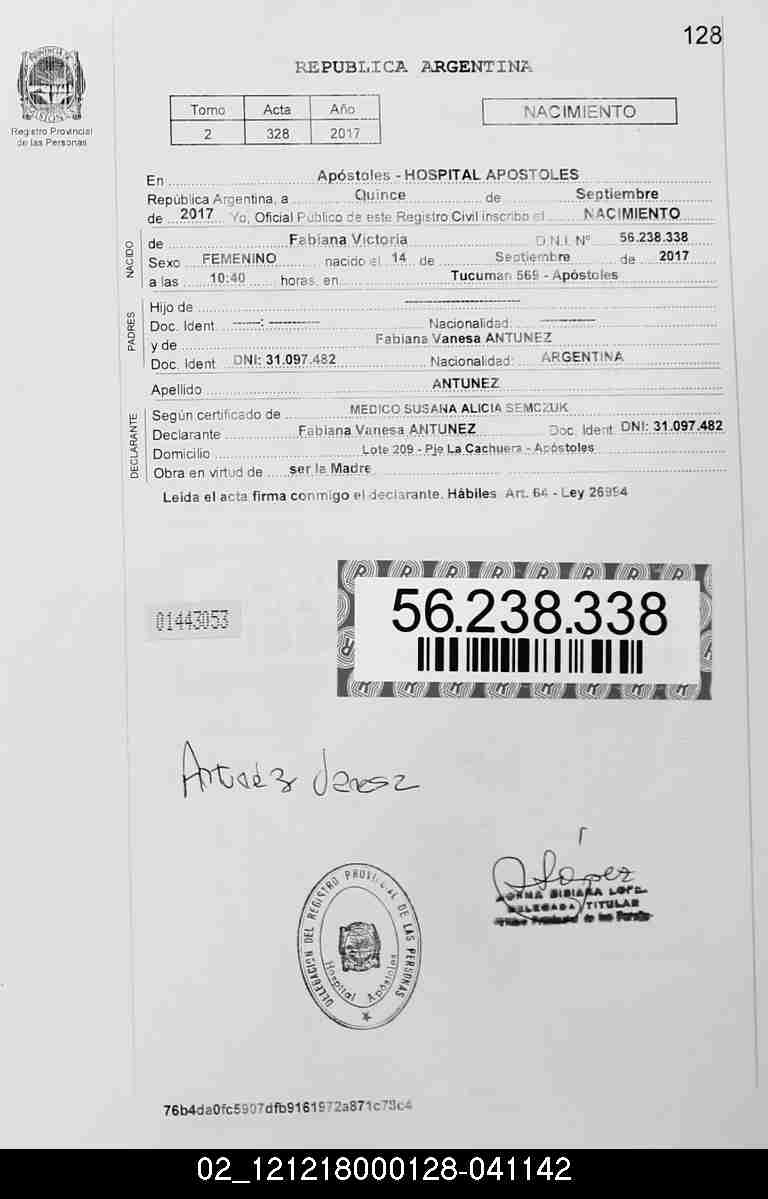 128
REPUBLICA ARGENTINA
Registro Provincial
de las Personas
Tomo Acta Año
2 328 2017
NACIMIENTO
En Apóstoles - HOSPITAL APOSTOLES
República Argentina, a Quince de Septiembre
de 2017 Yo, Oficial Público de este Registro Civil inscribo el NACIMIENTO
NACIDO
de Fabiana Victoria D.N.I. Nº 56.238.338
Sexo FEMENINO nacido el 14 de Septiembre de 2017
a las 10:40 horas, en Tucuman 569 - Apóstoles
PADRES
Hijo de --------------------
Doc. Ident. -----: ---------- Nacionalidad: ----------
y de Fabiana Vanesa ANTUNEZ
Doc. Ident. DNI: 31.097.482 Nacionalidad: ARGENTINA
Apellido ANTUNEZ
DECLARANTE
Según certificado de MEDICO SUSANA ALICIA SEMCZUK
Declarante Fabiana Vanesa ANTUNEZ Doc. Ident. DNI: 31.097.482
Domicilio Lote 209 - Pje La Cachuera - Apóstoles
Obra en virtud de ser la Madre
Leida el acta firma conmigo el declarante. Hábiles. Art. 64 - Ley 26994
56.238.338
01443053
López
DELEGADA TITULAR
DELEGACION DEL REGISTRO PROVINCIAL DE LAS PERSONAS
Hospital Apóstoles
76b4da0fc5907dfb9161972a871c73c4
02_121218000128-041142